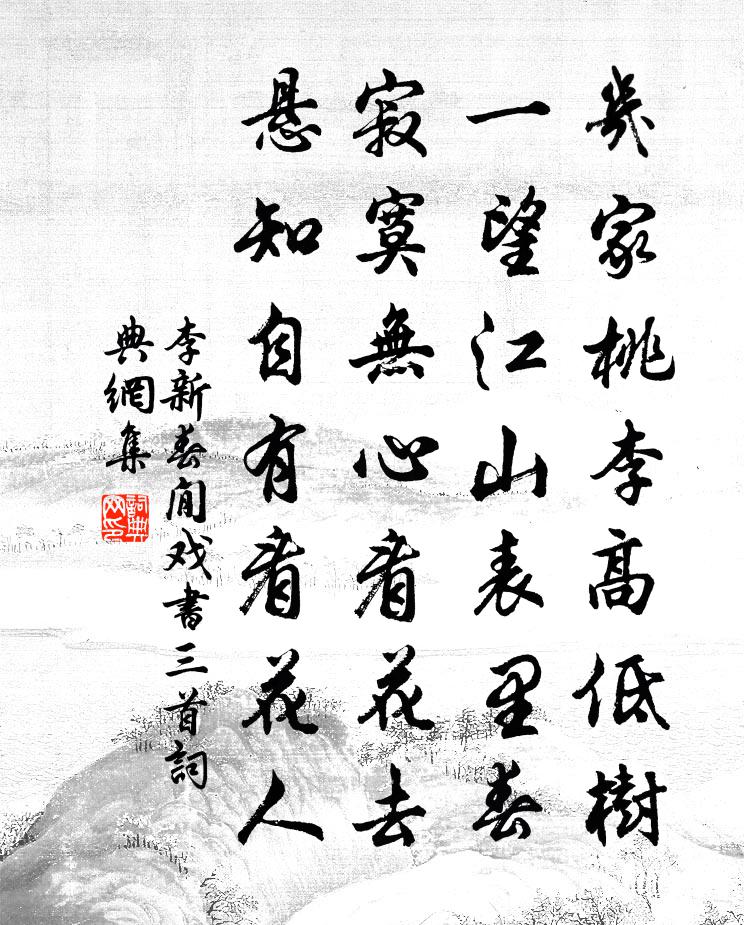 幾家桃李高低樹
一望江山表里春
寂寞無心看花去
懸知自有看花人
李新春閒戏書三首詞
典網集
詞典
网印